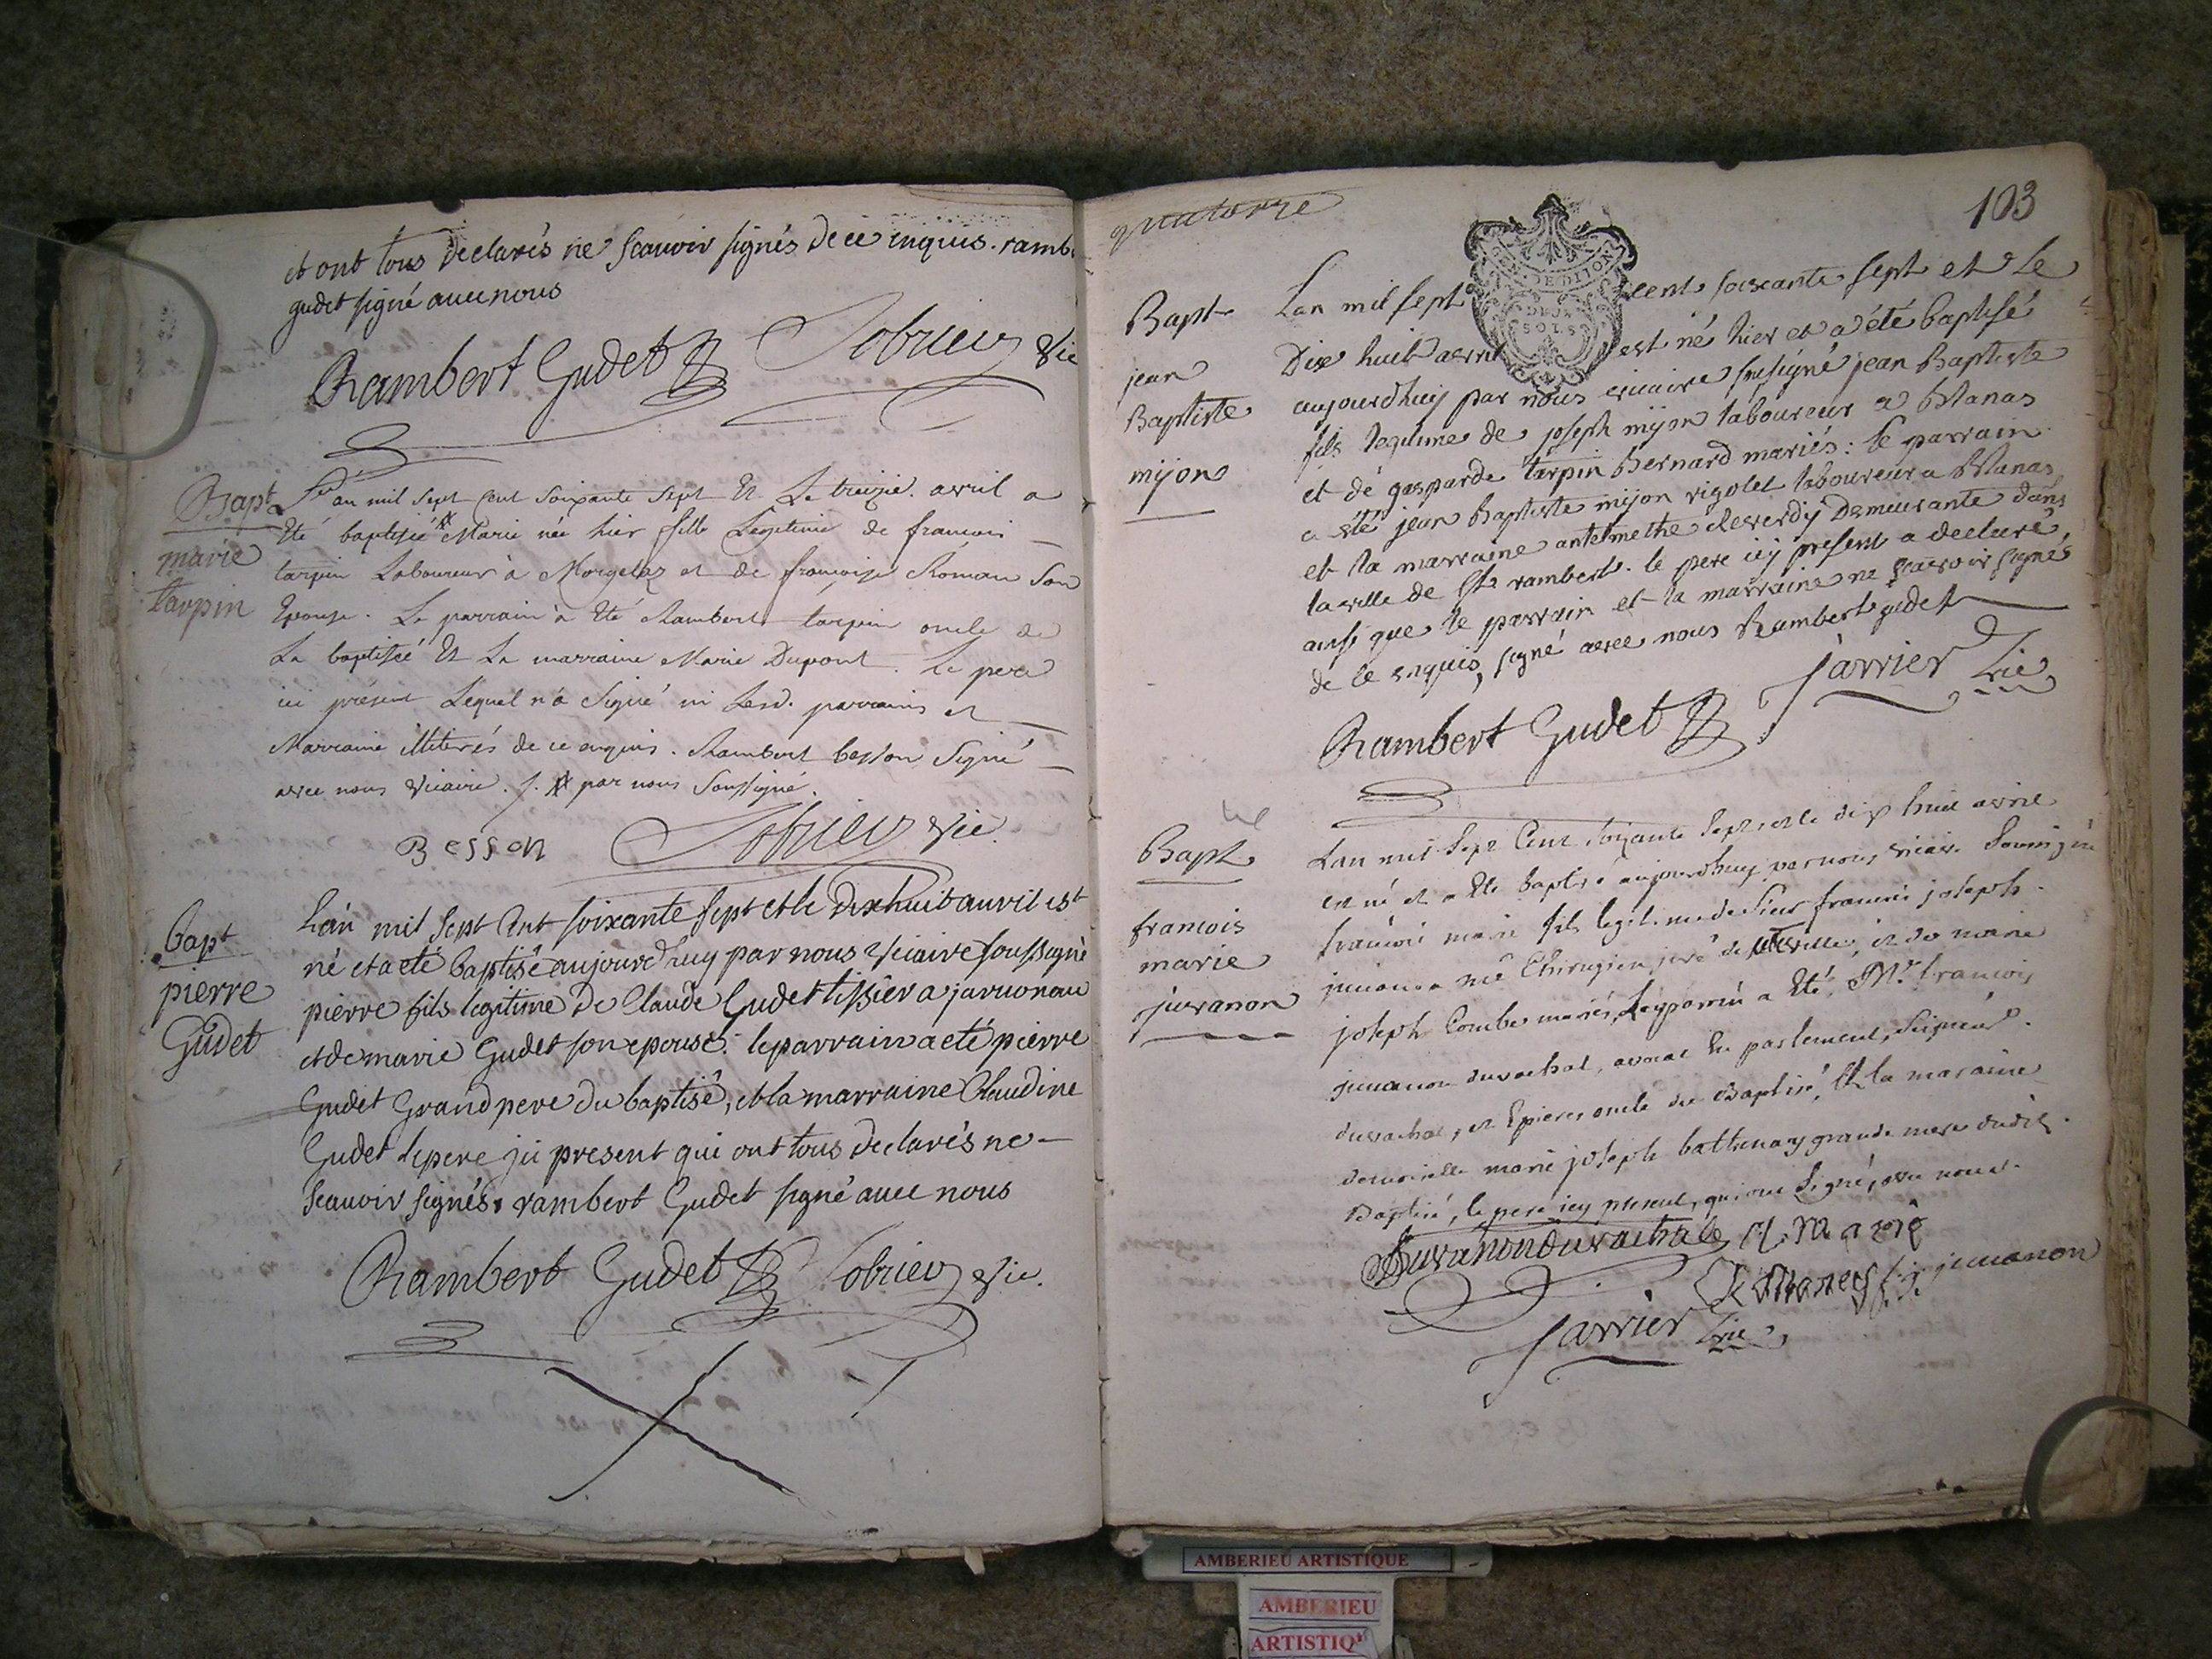 et ont tous declarés ne scauoir signés de ce enquis. ramb.
gudet signé auec nous
Rambert Gudet Sobrieu Vic
Bapt
marie
tarpin
L'an mil sept cent soixante sept Et Le treizie. avril a
Eté baptisée Marie née hier fille Legitime de francois
tarpin Laboureur à Morgelaz et de francoise Roman Son
Epouse. Le parrain à Eté Rambert tarpin oncle de
La baptisée Et La marraine Marie Dupont. Le pere
ici présent Lequel n'a Signé ni Lesd. parrains et
Marraine illiterés de ce enquis. Rambert besson Signé
avec nous Vicaire. /. par nous Soussigné.
Besson Sobrieu Vic.
bapt
pierre
Gudet
Lan mil sept cent soixante sept et le dix huit auvril est
né et a eté baptisé aujourd'huy par nous Viciaire soussigné
pierre fils legitime de Claude Gudet tissier a jaruonau
et de marie Gudet son epouse. le parrain a eté pierre
Gudet Grand pere du baptisé, et la marraine Claudine
Gudet le pere ici present qui ont tous declarés ne
scauoir signés. rambert Gudet signé auec nous
Rambert Gudet Sobrieu Vic.
quatorze
103
GEN. DE DIJON
DEUX
SOLS
Bapt
jean
Baptiste
mijon
Lan mil sept cent soixante sept et Le
Dix huit avril est né hier et a été baptisé
aujourdhuy par nous vicaire sousigné jean Baptiste
fils legitime de joseph mijon laboureur a blanas
et de gasparde tarpin bernard mariés: le parrain
a été jean Baptiste mijon rigolet laboureur a blanas
et la marraine antelmethe Reverdy Demeurante dans
la ville de St rambert. le pere icy present a declaré,
ainsi que le parrain et la marraine ne scavoir signés
de ce enquis, signé avec nous Rambert gudet
Jarrier Vic
Rambert Gudet
Bapt
francois
marie
juvanon
Lan mil Sept Cent soixante Sept et le dix huit avril
est né et a Eté baptisé aujourdhuy par nous vicaire Soussigné
francois marie fils legitime de Sieur francois joseph
juvanon mé Chirugien juré de ville, et de marie
joseph Combe mariés, Le parrin a Eté Mr. francois
juvanon duvachat, avocat En parlement, Seigneur
duvachat, et Epierre oncle du Baptisé, Et la maraine
demoiselle marie joseph battenay grande mere dudit
Baptisé, le pere icy present, qui ont Signé, avec nous
Juvanon duvachat
juvanon
Jarrier Vic
AMBERIEU ARTISTIQUE
AMBERIEU
ARTISTIQ